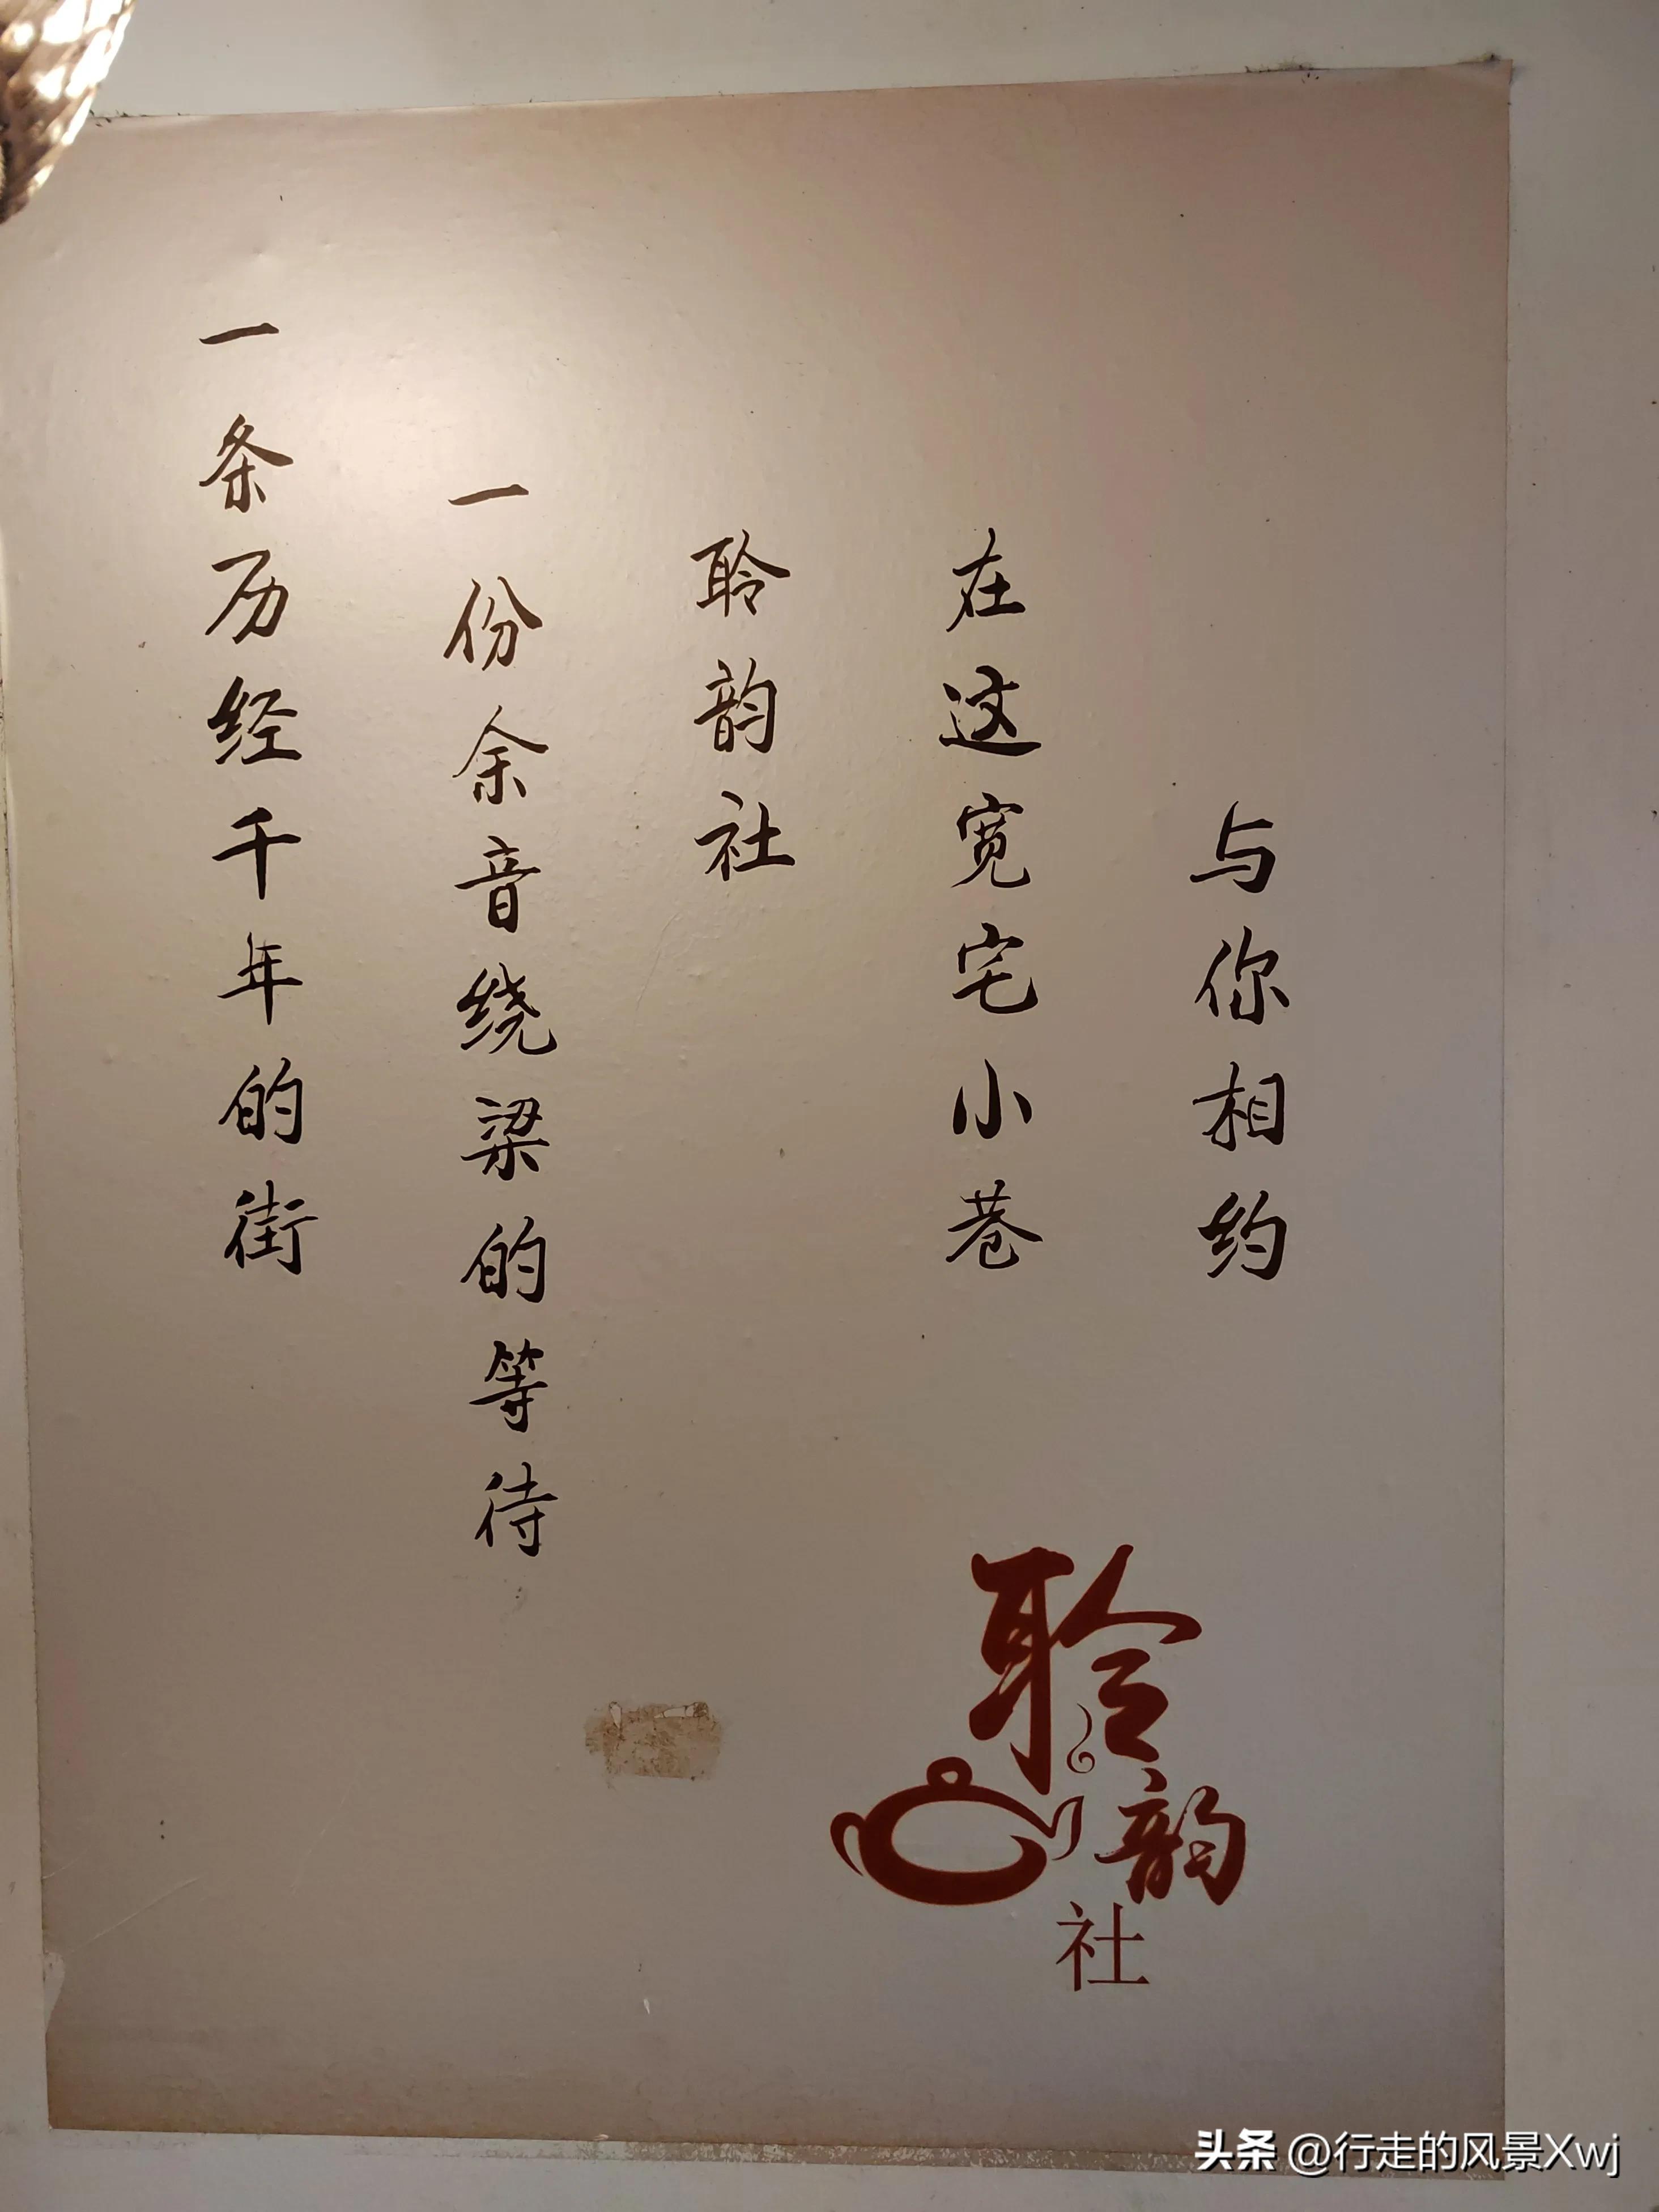 一条历经千年的街
一份余音绕梁的等待
聆韵社
在这宽宅小巷
与你相约
聆韵社
头条 @行走的风景Xwj